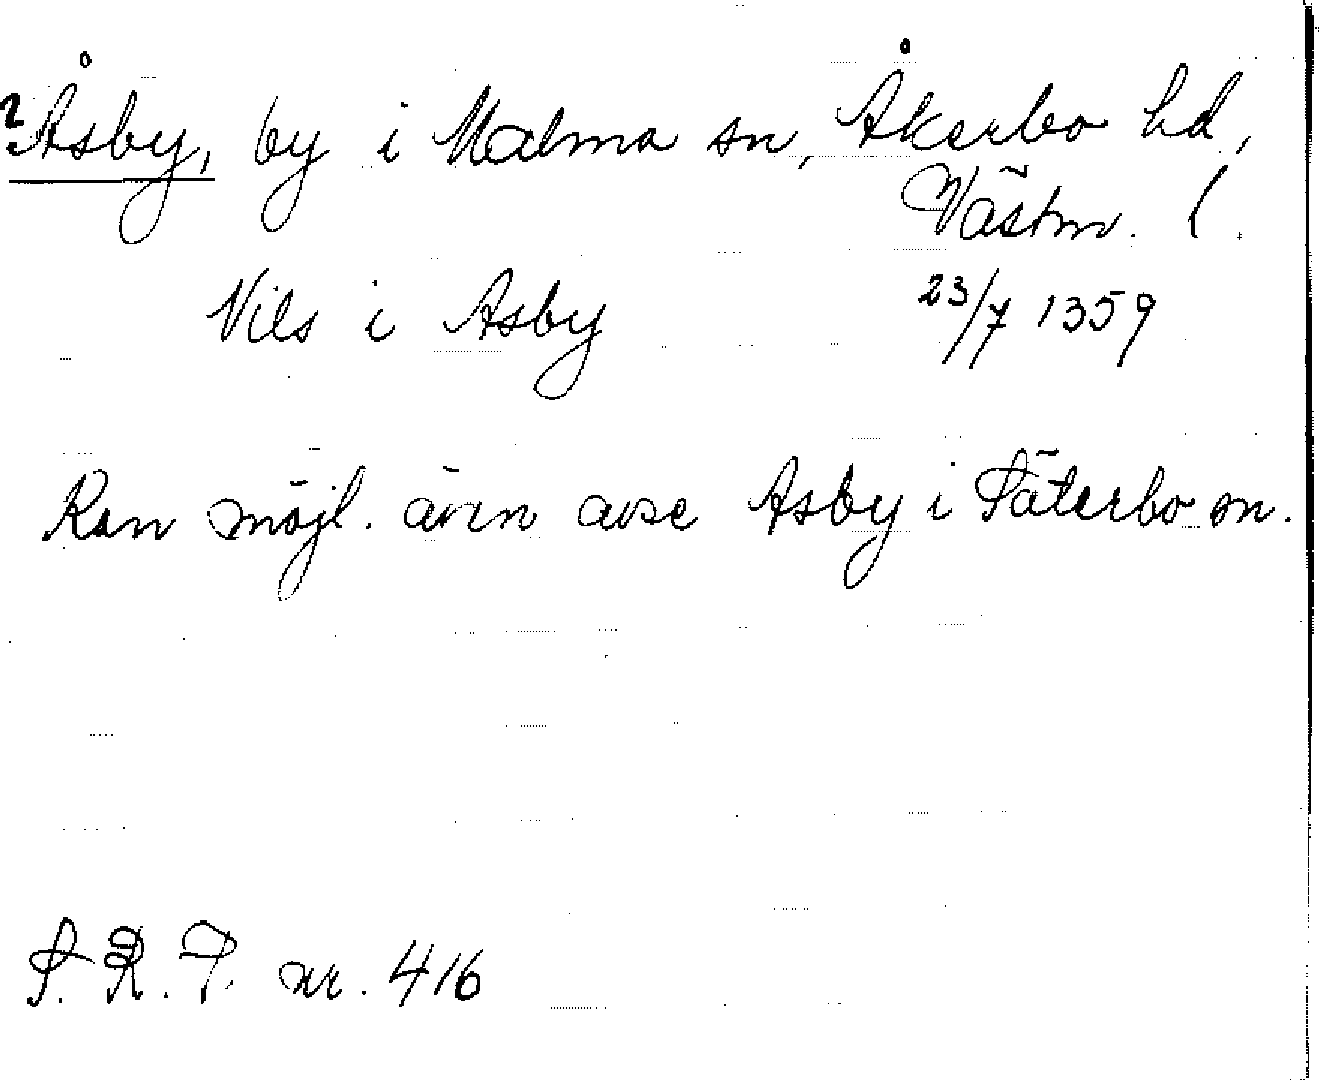 ?Åsby, by i Malma sn, Åkerbo hd,
Västm. l.
Nils i Asby 23/7 1359
Kan möjl. även avse Åsby i Säterbo sn.
S. R. P. nr. 416